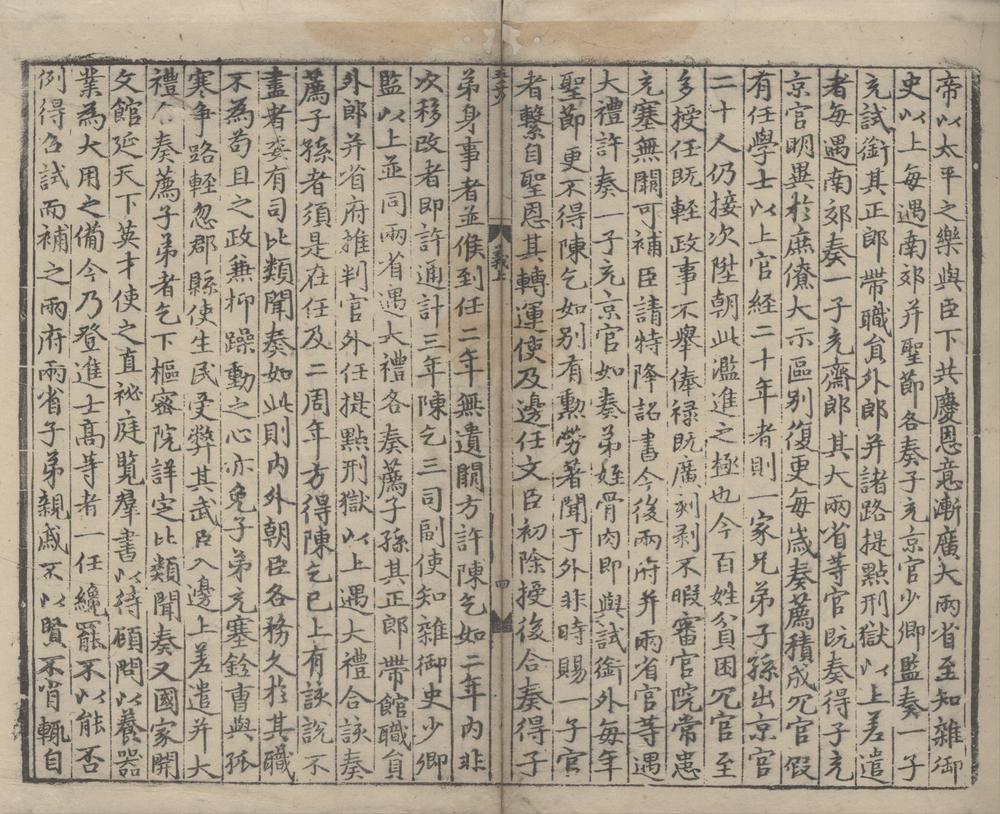 帝以太平之樂與臣下共慶恩意漸廣大兩省至知雜御
史以上每遇南郊并聖節各奏子充京官少卿監奏一子
充試銜其正郎帶職貟外郎并諸路提點刑獄以上差遣
者每遇南郊奏一子充齋郎其大兩省等官既奏得子充
京官明異於庶僚大示區別復更每歳奏薦積成冗官假
有任學士以上官經二十年者則一家兄弟子孫出京官
二十人仍接次陞朝此濫進之極也今百姓貧困冗官至
多授任既輕政事不舉俸禄既廣刻剥不暇審官院常患
充塞無闕可補臣請特降詔書今後兩府并兩省官等遇
大禮許奏一子充京官如奏弟姪骨肉即與試銜外每年
聖節更不得陳乞如別有勲勞著聞于外非時賜一子官
者繫自聖恩其轉運使及邊任文臣初除授後合奏得子
義上
四
弟身事者並候到任二年無遺闕方許陳乞如二年内非
次移改者即許通計三年陳乞三司副使知雜御史少卿
監以上並同兩省遇大禮各奏薦子孫其正郎帶館職貟
外郎并省府推判官外任提點刑獄以上遇大禮合該奏
薦子孫者須是在任及二周年方得陳乞已上有該說不
盡者委有司比類聞奏如此則内外朝臣各務久於其職
不為苟且之政兼抑躁動之心亦免子弟充塞銓曹與孤
寒争路輕忽郡縣使生民受弊其武臣入邊上差遣并大
禮合奏薦子弟者乞下樞密院詳定比類聞奏又國家開
文館延天下英才使之直祕庭覧羣書以待顧問以養器
業為大用之備今乃登進士高等者一任纔罷不以能否
例得召試而補之兩府兩省子弟親戚不以賢不肖輒自